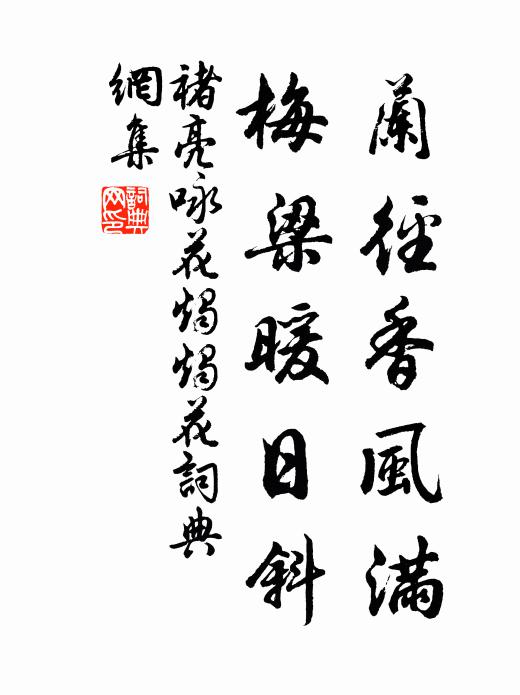 蘭徑香風滿
梅梁暖日斜
褚亮咏花燭燭花詞典
網集
詞典
网印